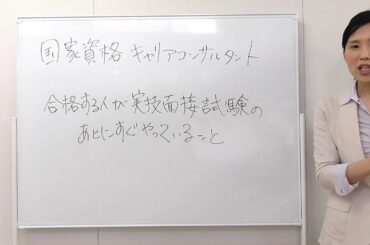 国家資格 キャリアコンサルタント
合格する人が実技面接試験の
あとにすぐやっていること